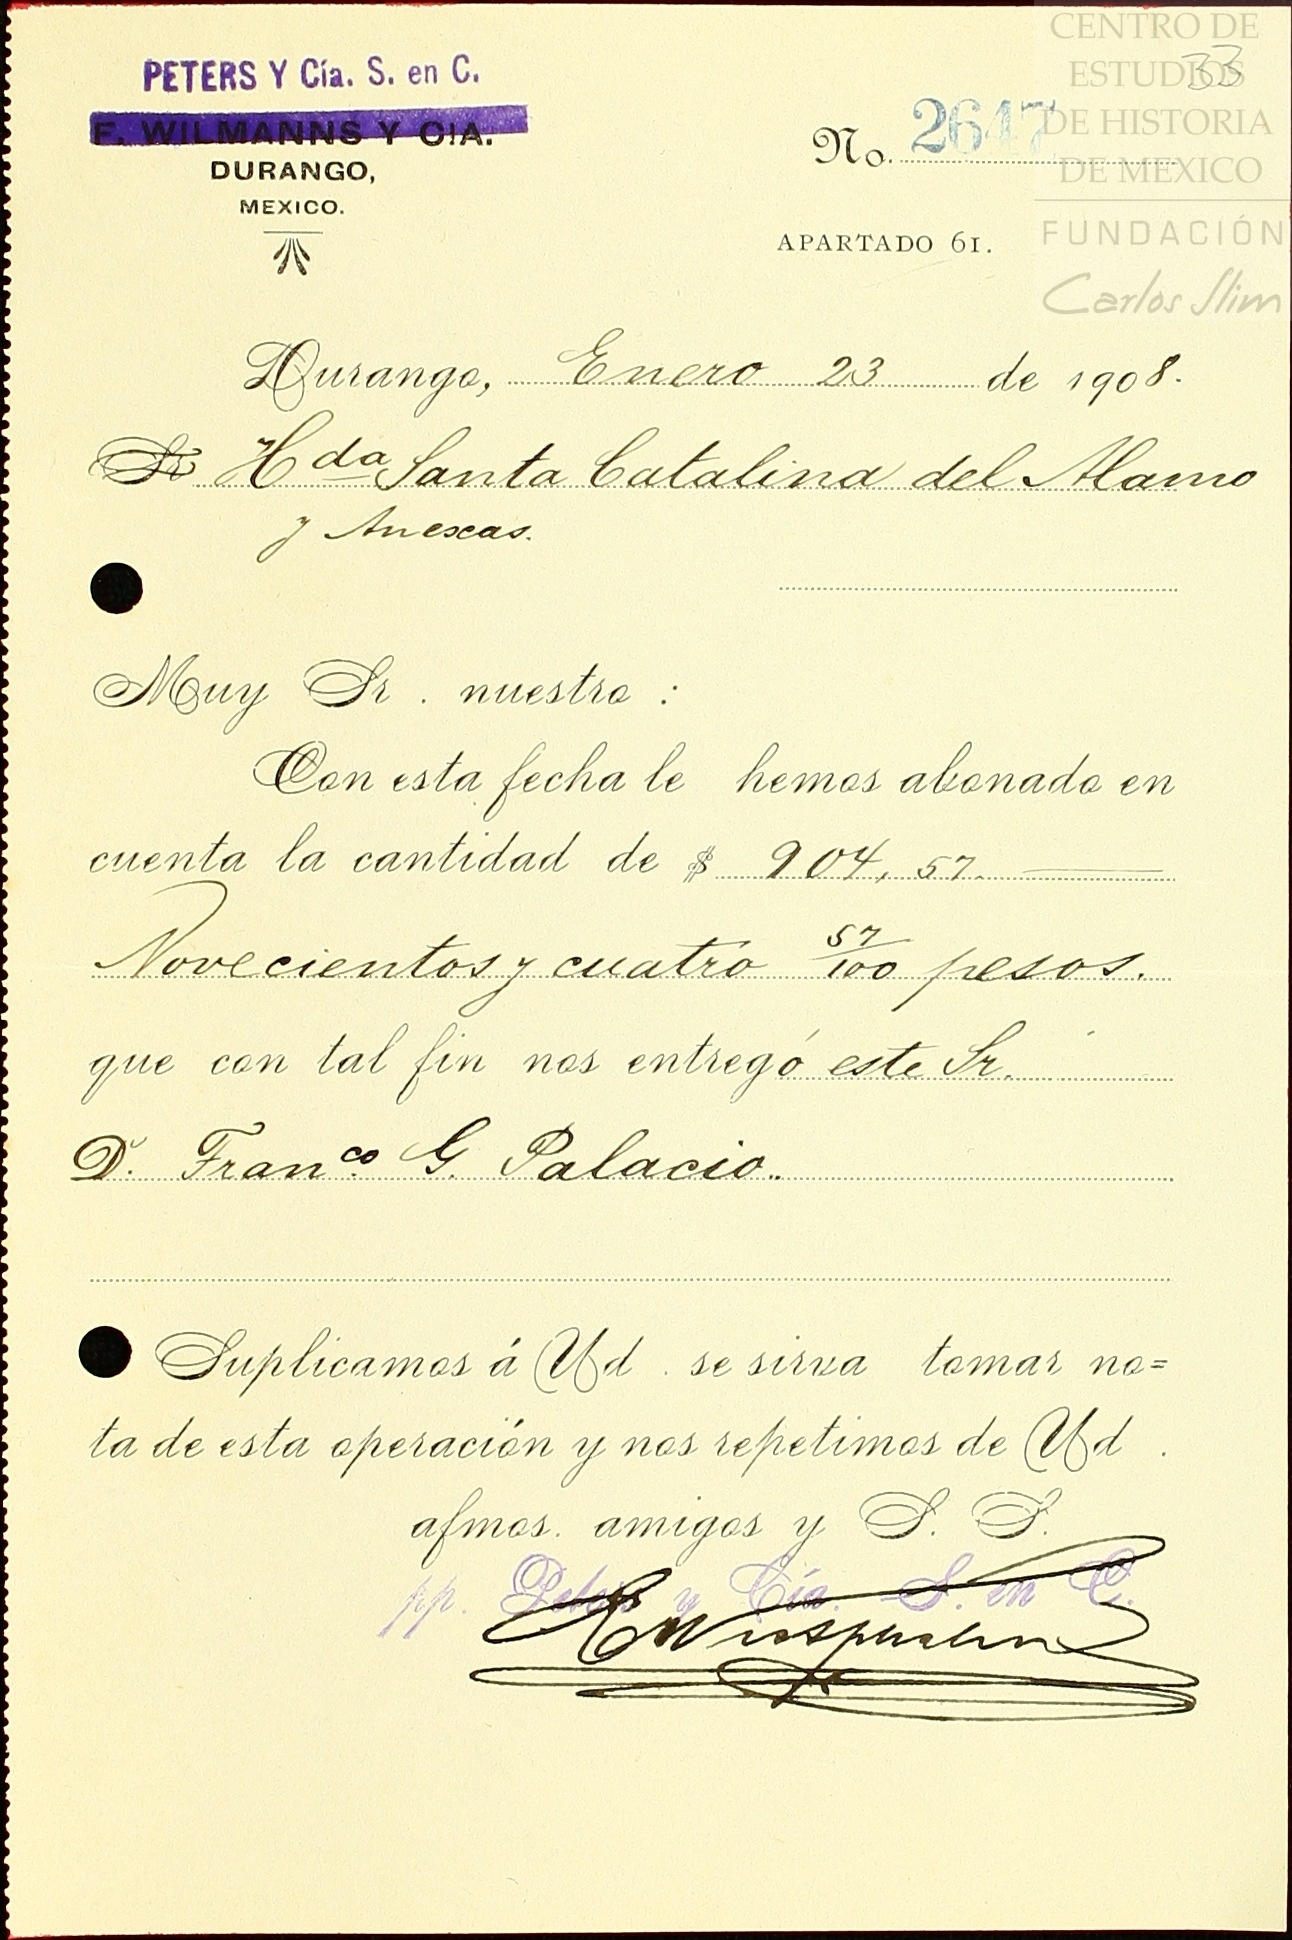 CENTRO DE
ESTUDIOS
DE HISTORIA
DE MEXICO
FUNDACIÓN
Carlos Slim
33
PETERS Y Cía. S. en C.
F. WILMANNS Y CIA.
DURANGO,
MEXICO.
No. 2647
APARTADO 61.
Durango, Enero 23 de 1908.
Sr Hda Santa Catalina del Alamo
y Anexas.
Muy Sr. nuestro:
Con esta fecha le hemos abonado en
cuenta la cantidad de $ 904,57.
Novecientos y cuatro 57/100 pesos.
que con tal fin nos entregó este Sr.
D. Franco. G. Palacio.
Suplicamos á Ud. se sirva tomar no=
ta de esta operación y nos repetimos de Ud.
afmos. amigos y S. S.
pp. Peters y Cía. S. en C.